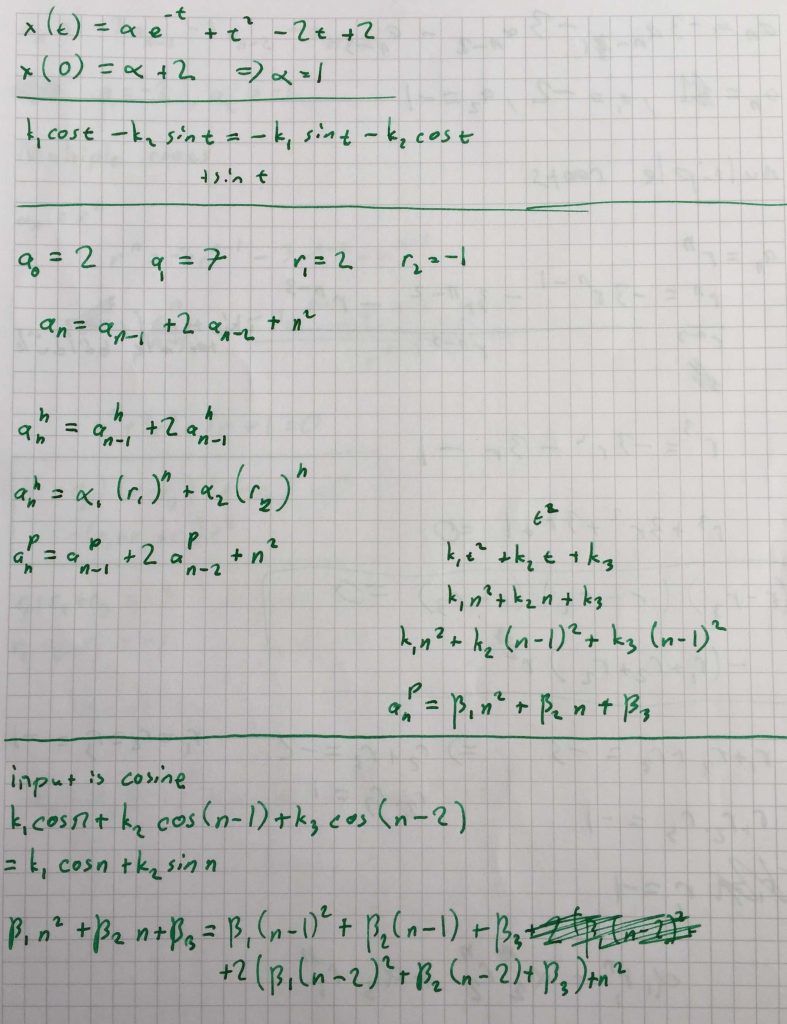 x(t) = αe^{-t} + t² - 2t + 2
x(0) = α + 2 ⇒ α = 1
k₁ cost - k₂ sint = -k₁ sint - k₂ cost
+ sin t
a₀ = 2 a₁ = 7 r₁ = 2 r₂ = -1
aₙ = aₙ₋₁ + 2 aₙ₋₂ + n²
aₙʰ = aₙ₋₁ʰ + 2 aₙ₋₁ʰ
aₙʰ = α₁ (r₁)ⁿ + α₂ (r₂)ⁿ
t²
aₙᵖ = aₙ₋₁ᵖ + 2 aₙ₋₂ᵖ + n²
k₁t² + k₂ t + k₃
k₁n² + k₂ n + k₃
k₁n² + k₂ (n-1)² + k₃ (n-1)²
aₙᵖ = β₁n² + β₂ n + β₃
input is cosine
k₁ cosn + k₂ cos(n-1) + k₃ cos(n-2)
= k₁ cosn + k₂ sin n
β₁n² + β₂ n + β₃ = β₁(n-1)² + β₂(n-1) + β₃
+2(β₁(n-2)² + β₂(n-2) + β₃) + n²